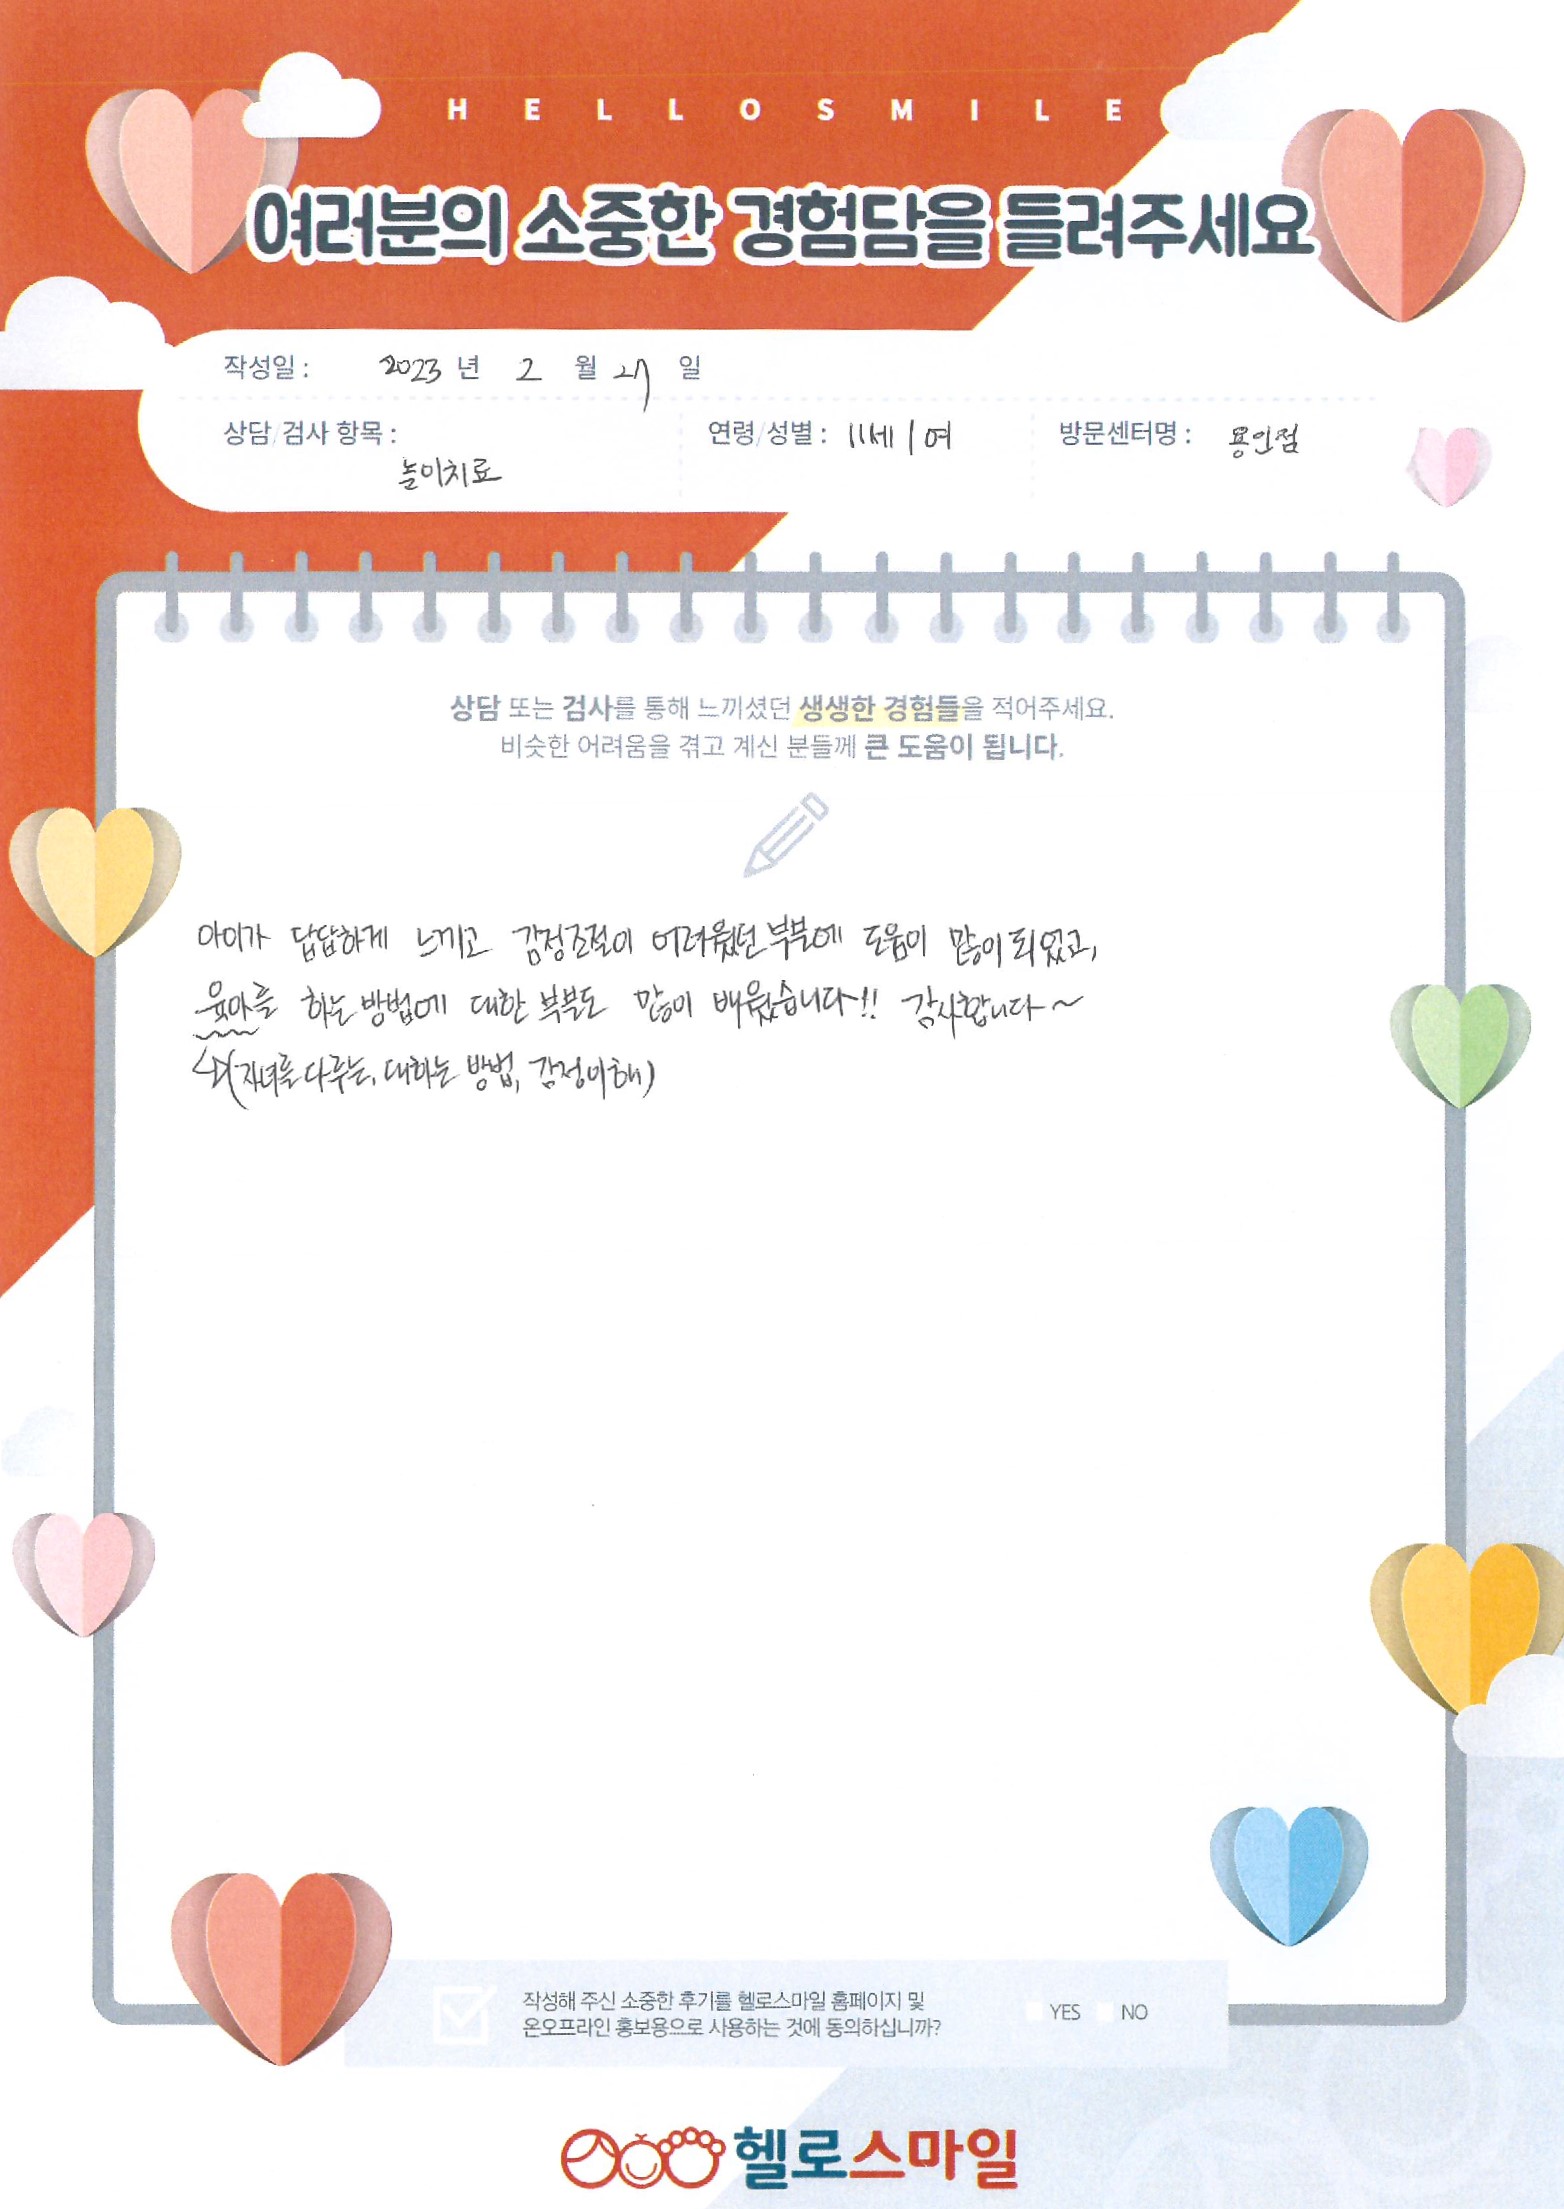 HELLOSMILE
여러분의 소중한 경험담을 들려주세요
작성일 : 2023 년 2 월 27 일
상담/검사 항목 : 놀이치료
연령/성별 : 11세 / 여
방문센터명 : 용인점
상담 또는 검사를 통해 느끼셨던 생생한 경험들을 적어주세요.
비슷한 어려움을 겪고 계신 분들께 큰 도움이 됩니다.
아이가 답답하게 느끼고 감정조절이 어려웠던 부분에 도움이 많이 되었고,
육아를 하는 방법에 대한 부분도 많이 배웠습니다!! 감사합니다~
(자녀를 다루는, 대하는 방법, 감정이해)
작성해 주신 소중한 후기를 헬로스마일 홈페이지 및
온오프라인 홍보용으로 사용하는 것에 동의하십니까?
YES NO
헬로스마일